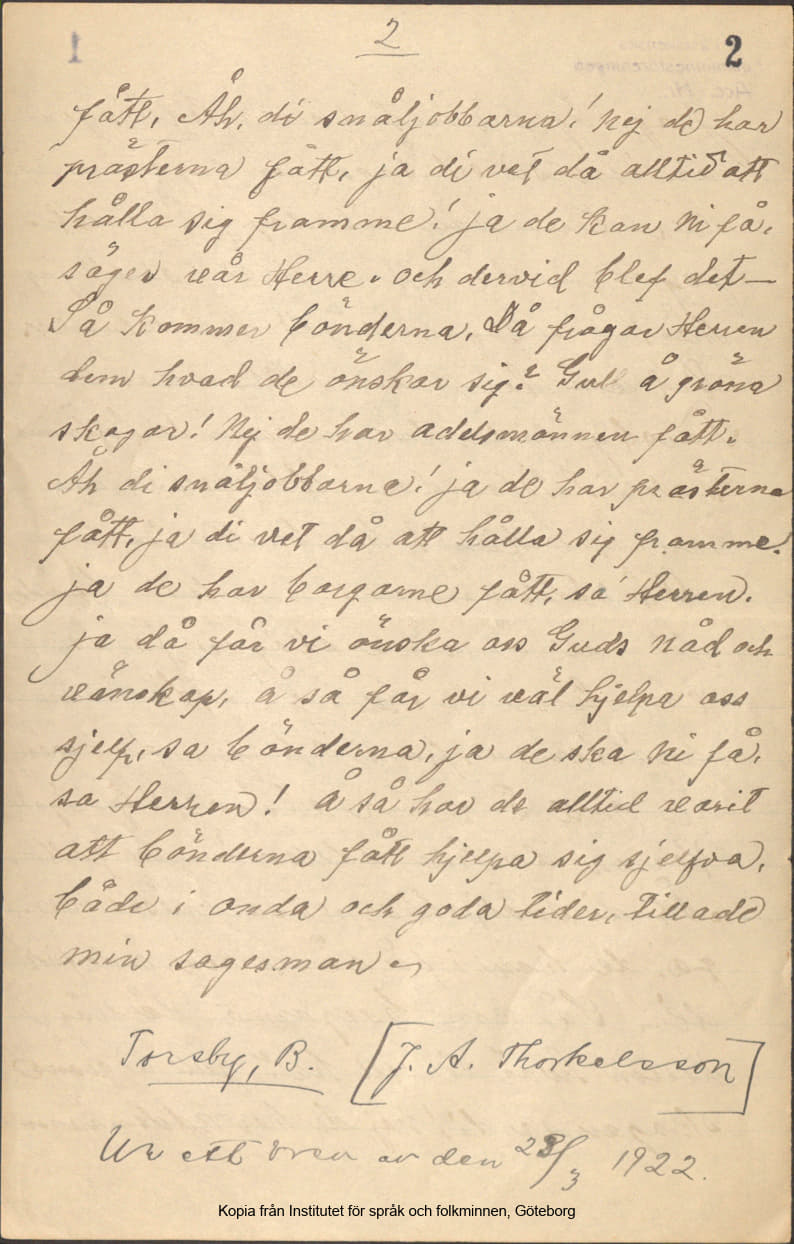 2
2
fått, Åh, di snåljobbarna! Nej de har
prästerna fått, ja di vet då alltid att
hålla sig framme! ja de kan Ni få,
säger vår Herre. och dervid blef det—
Så kommer bönderna, Då frågar Herren
dem hvad de önskar sig? Gull å gröna
skogar! Nej de har adelsmännen fått.
Åh di snåljobbarna! ja de har prästerna
fått, ja di vet då att hålla sig framme!
ja de har borgarne fått, sa' Herren.
ja då får vi önska oss Guds nåd och
vänskap, å så får vi väl hjelpa oss
sjelf, sa bönderna, ja de ska Ni få,
sa Herren! å så har de alltid varit
att bönderna fått hjelpa sig sjelfva,
både i onda och goda tider, tillade
min sagesman
Torsby, B. [J. A. Thorkelsson]
Ur ett brev av den 28/3 1922.
Kopia från Institutet för språk och folkminnen, Göteborg